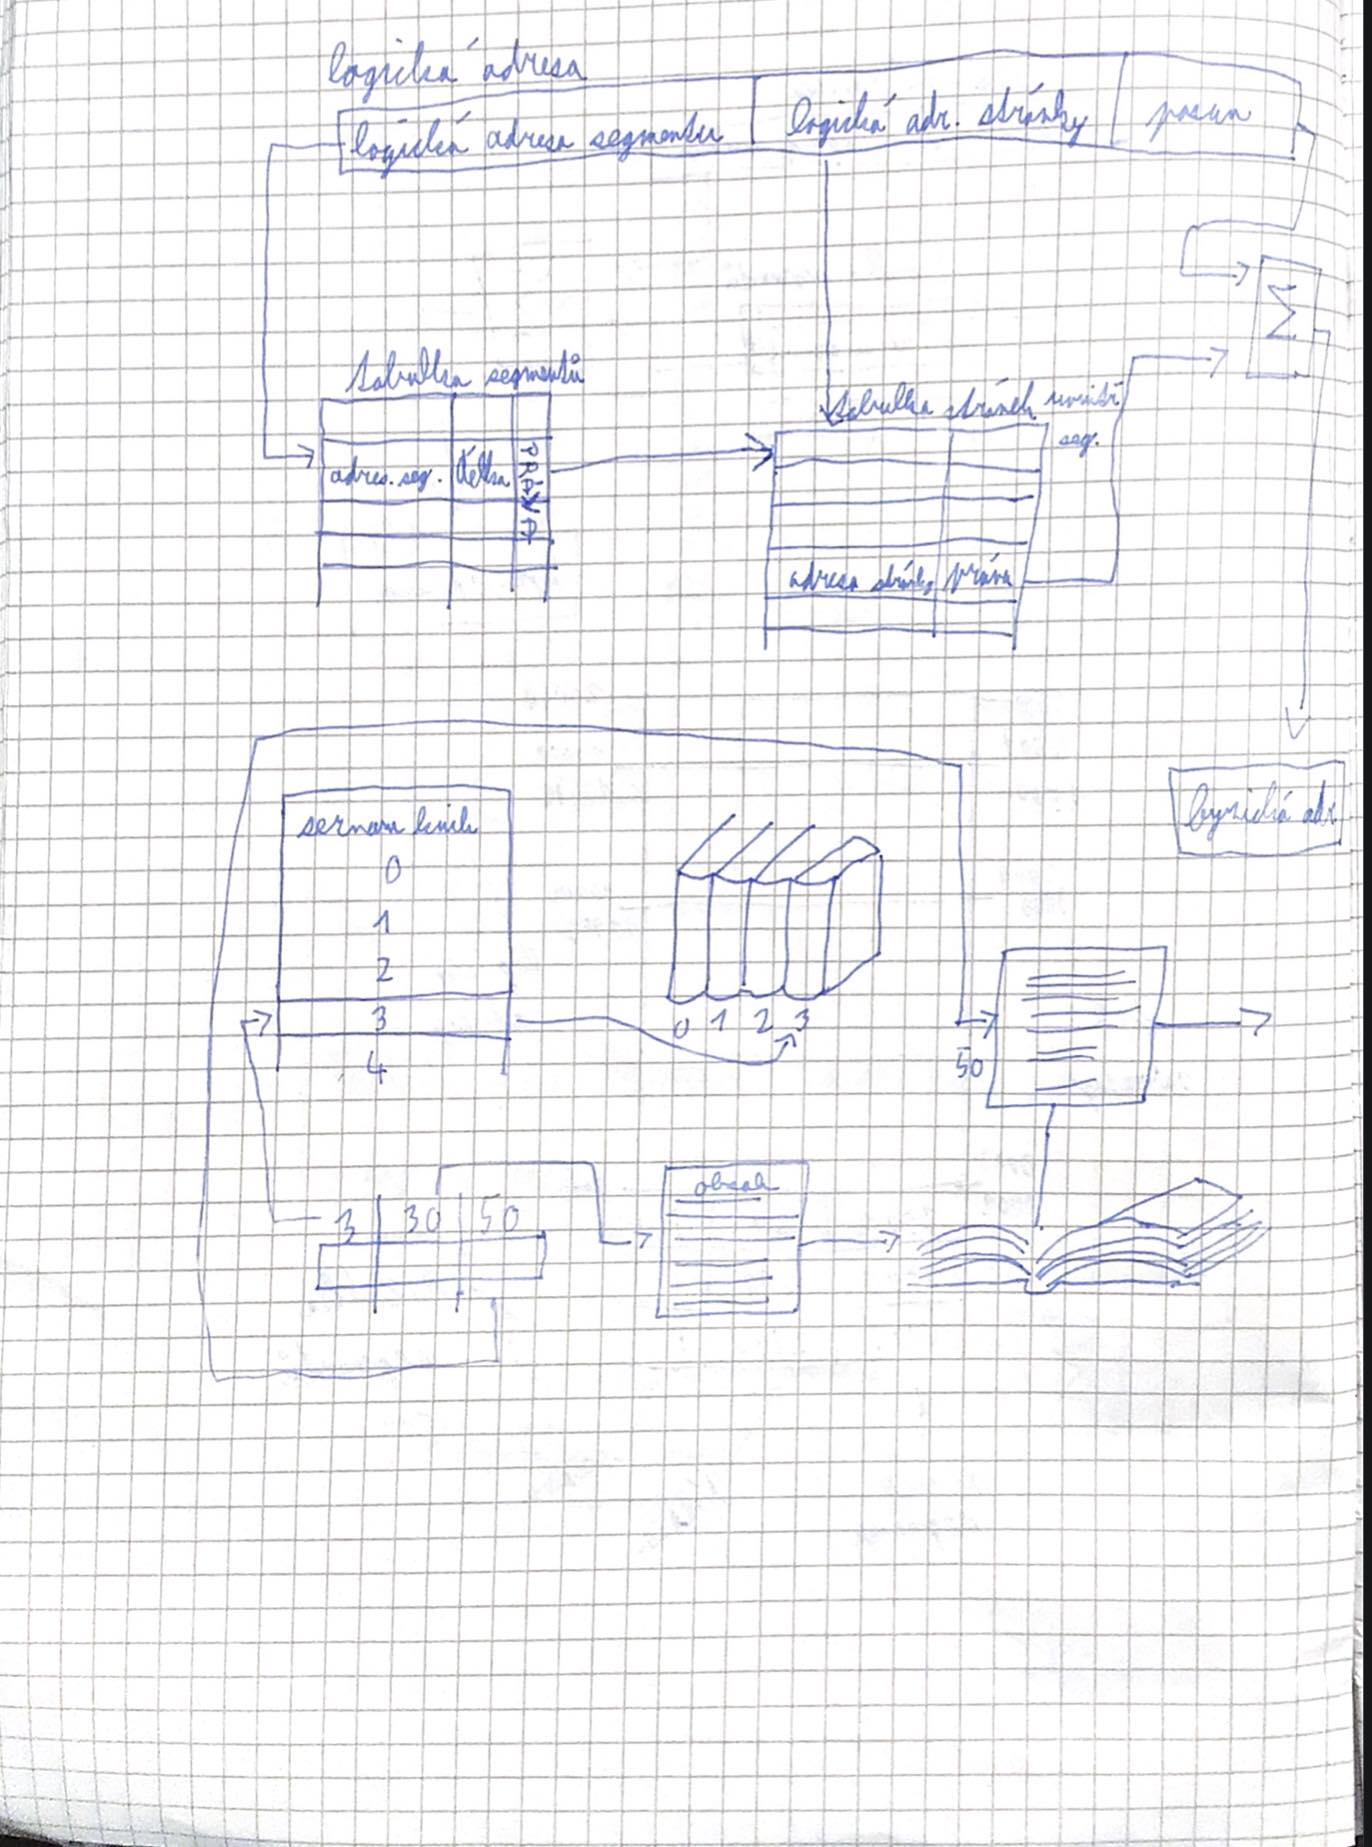 logická adresa
logická adresa segmentu logická adr. stránky posun
Σ
tabulka segmentů
adres. seg. délka PRÁVA
tabulka stránek uvnitř
seg.
adresa stránky práva
fyzická adr
seznam knih
0
1
2
3
4
0 1 2 3
50
3 30 50
obsah